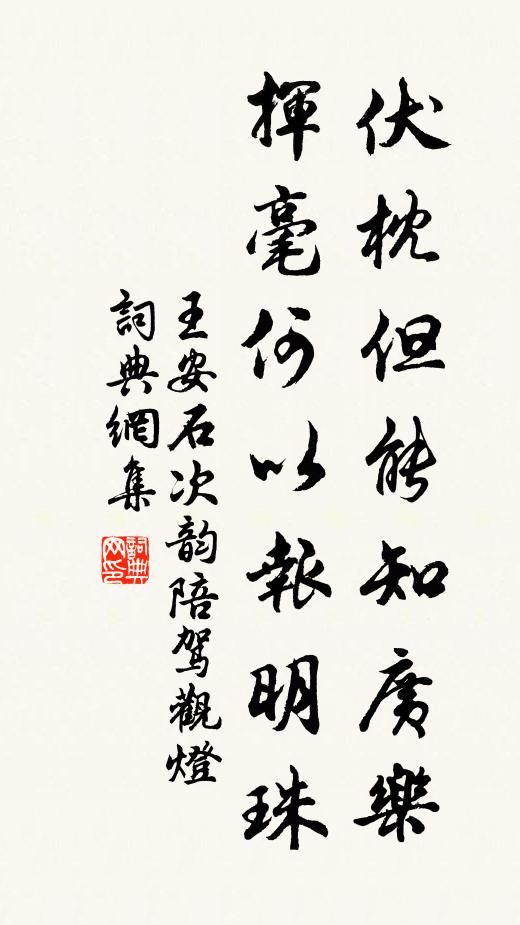 伏枕但能知廣樂
揮毫何以報明珠
王安石次韵陪駕觀燈
詞典網集
詞典網印